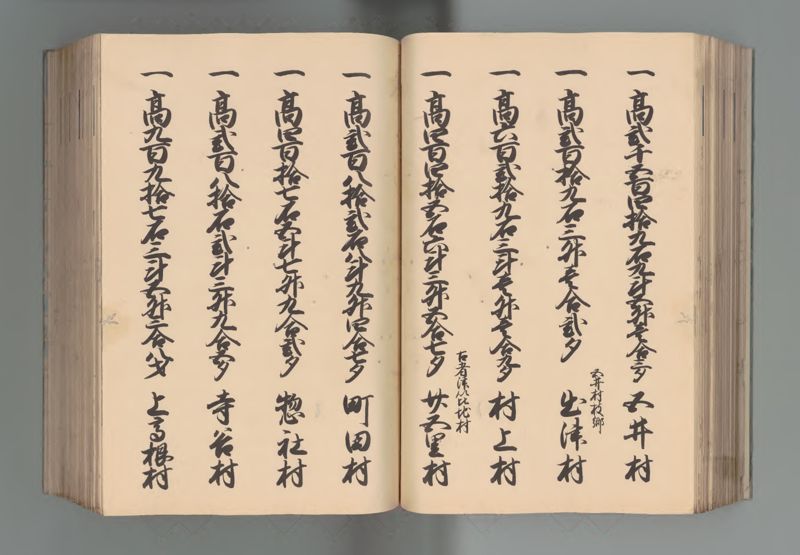 一高弐千五百四拾九石九斗五升壱合三夕 五井村
五井村枝郷
一高弐百拾九石三升壱合弐夕 出津村
一高六百弐拾九石三斗壱升壱合夕 村上村
古者
一高四百四拾五石六斗三升五合七夕 廿五里村
一高弐百八拾弐石八斗九升四合七夕 町田村
一高四百拾七石五斗七升九合弐夕 惣社村
一高弐百八拾石弐斗三升九合夕 寺谷村
一高九百九拾七石三斗五升三合八夕 上高根村